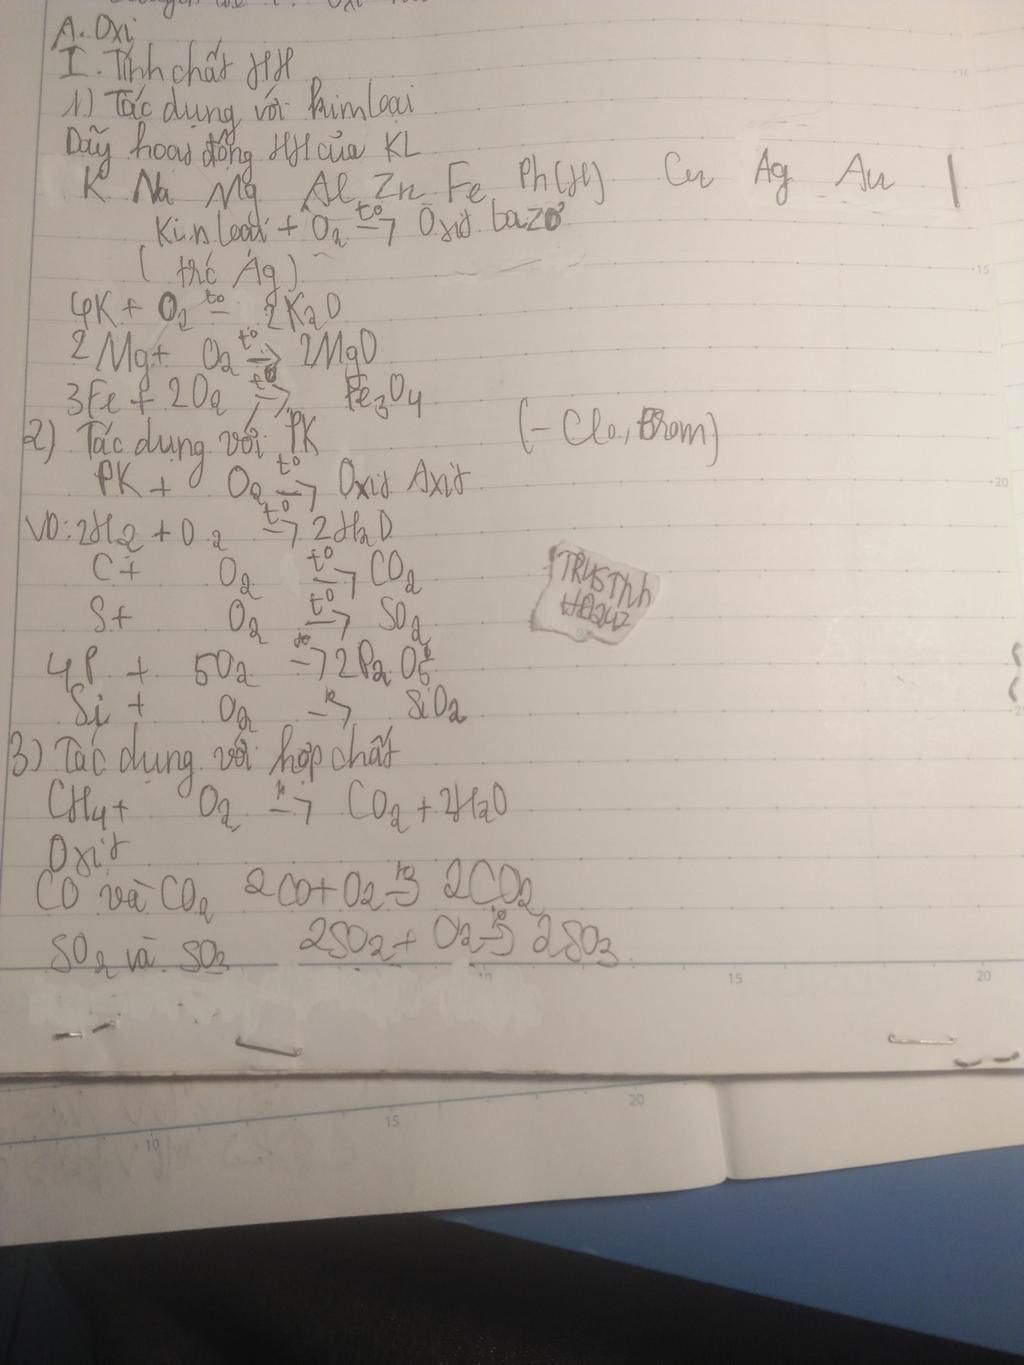 A. Oxi
I. Tính chất HH
1) Tác dụng với kim loại
Dãy hoạt động HH của KL
K Na Mg Al Zn Fe Pb (H) Cu Ag Au
Kim loại + O₂ t° → Oxit bazơ
(trừ Ag)
4K + O₂ t° 2K₂O
2Mg + O₂ t° → 2MgO
3Fe + 2O₂ t° → Fe₃O₄
2) Tác dụng với PK (- Clo, Brom)
PK + O₂ t° → Oxit Axit
VD: 2H₂ + O₂ t° → 2H₂O
C + O₂ t° → CO₂
S + O₂ t° → SO₂
4P + 5O₂ t° → 2P₂O₅
Si + O₂ t° → SiO₂
3) Tác dụng với hợp chất
CH₄ + O₂ t° → CO₂ + 2H₂O
Oxit
CO và CO₂ 2CO + O₂ t° → 2CO₂
SO₂ và SO₃ 2SO₂ + O₂ t° → 2SO₃
10 15 20
10 15 20